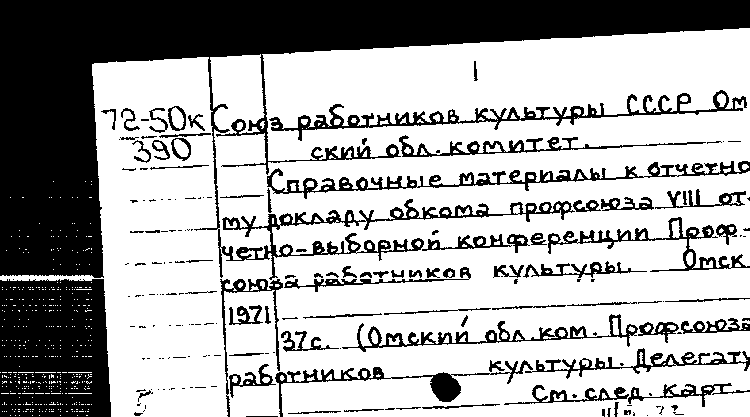 72-50к Союз работников культуры СССР. Ом
390 ский обл. комитет.
Справочные материалы к отчетно
му докладу обкома профсоюза VIII от-
четно-выборной конференции Проф-
союза работников культуры. Омск
1971
37с. (Омский обл. ком. Профсоюза
работников культуры. Делегату
5 См. след. карт